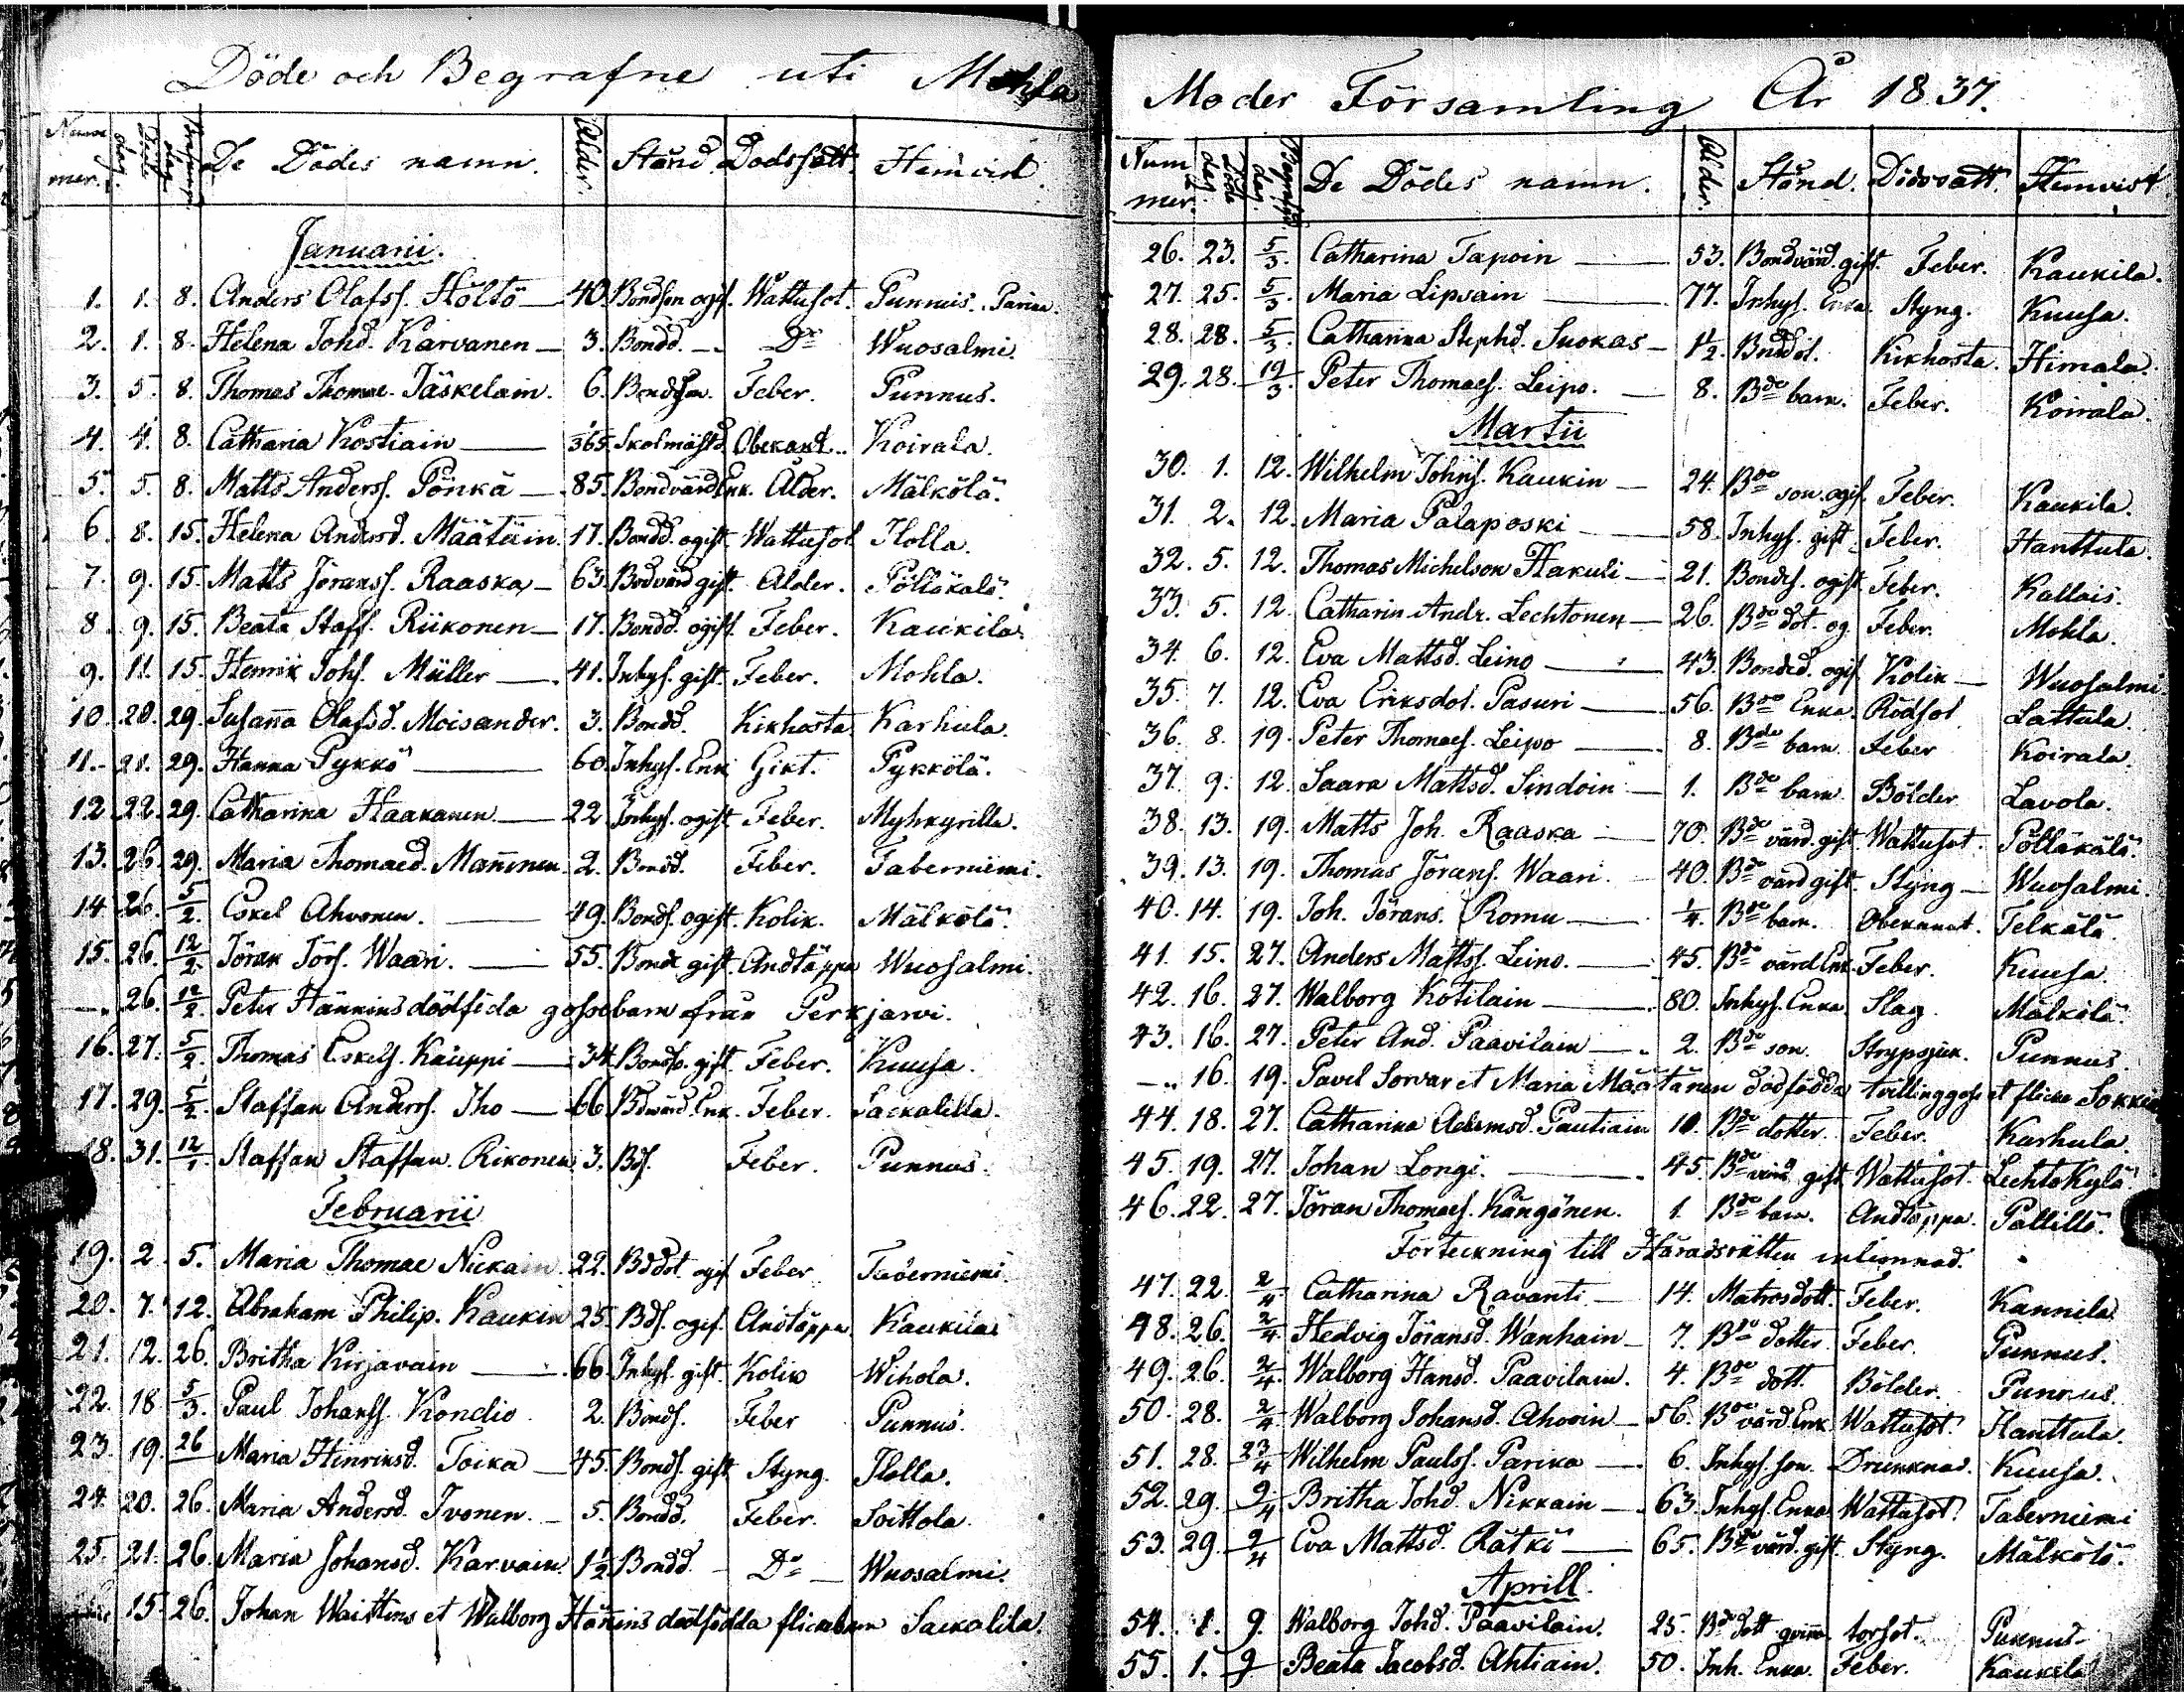 Döde och Begrafne uti Mohla
Num mer. | Döde dag. | Begrafnings dag | De Dödes namn. | Ålder. | Stånd. | Dodssätt. | Hemvist.
Januarii.
1. 1. 8. Anders Olafss. Höltö — 40. Bondson ogif. Wattusot. Punnus. Parina.
2. 1. 8. Helena Johd. Karvanen — 3. Bondd. — Do Wuosalmi.
3. 5. 8. Thomas Thomae. Jäskelain. 6. Bondson. Feber. Punnus.
4. 4. 8. Catharia Kostiain — 365. Skolmästd. Obekant.. Koirala.
5. 5. 8. Matts Anderss. Pönkä — 85. Bondvärd Enk. Ålder. Mälkölä.
6. 8. 15. Helena Andersd. Määtäin. 17. Bondd. ogift. Wattusot Ilolla.
7. 9. 15. Matts Jöranss. Raaska — 63. Bodvärd gift. Alder. Pölläkälä.
8. 9. 15. Beata Staff. Riikonen — 17. Bondd. ogift. Feber. Kaukila.
9. 11. 15. Henrik Johs. Müller — 41. Inhys. gift. Feber. Mohla.
10. 20. 29. Susaña Olafsd. Moisander. 3. Bondd. Kikhosta Karhula.
11. 21. 29. Hanna Pykkö — 60. Inhys. Enk Gikt. Pykkölä.
12. 22. 29. Catharina Haakanen — 22. Inhys. ogift. Feber. Myhkyrilla.
13. 26. 29. Maria Thomaed. Mañonen. 2. Bondd. Feber. Taberniemi.
14. 26. 5/2. Eskel Ahvonen. — 49. Bonds. ogift. Kolik. Mälkölä.
15. 26. 12/2. Jöran Jörs. Waari. — 55. Bonde gift. Andtäppa Wuosalmi.
—. 26. 12/2. Peter Hännins dödföda gossebarn från Perkjarvi.
16. 27. 5/2. Thomas Eskels. Kauppi — 34. Bonds. gift. Feber. Kuusa.
17. 29. 5/2. Staffan Anderss. Iho — 66. Bdwärd Enk. Feber. Sackalilla.
18. 31. 12/1. Staffan Staffan. Rikonen 3. Bds. Feber. Punnus.
Februarii
19. 2. 5. Maria Thomae Nickain. 22. Bddot. ogif. Feber Taberniemi
20. 7. 12. Abraham Philip. Kaukin 25. Bds. ogif. Andtäppa Kaukila
21. 12. 26. Britha Kirjavain — 66. Inhys. gift. Kolik Wihola.
22. 18 5/3. Paul Johanss. Kondio 2. Bonds. Feber Punnus.
23. 19. 26 Maria Hinriksd. Toika — 45. Bonds. gift Styng. Ilolla.
24. 20. 26. Maria Andersd. Ivonen. — 5. Bondd. Feber. Soittola.
25. 21. 26. Maria Johansd. Karvain. 1½ Bondd. — Do — Wuosalmi.
15. 26. Johan Waittins et Walborg Hänins dödfödda flickebarn Sackalila.
Moder Församling År 1837.
Num mer. | Döde dag. | Begrafnings dag. | De Dödes namn. | Ålder. | Stånd. | Dödssätt. | Hemvist
26. 23. 5/3. Catharina Tapoin — 53. Bondvärd. gift. Feber. Kaukila.
27. 25. 5/3. Maria Lipsain — 77. Inhys. Enka. Styng. Kuusa.
28. 28. 5/3. Catharina Stephd. Suokas — 1½. Bonddot. Kikhosta. Himala.
29. 28. 19/3. Peter Thomaes. Leipo. — 8. Bde barn. Feber. Koirala.
Martii
30. 1. 12. Wilhelm Johns. Kaukin — 24. Bde son. ogif. Feber. Kaukila.
31. 2. 12. Maria Palaposki — 58. Inhys. gift. Feber. Hanttula.
32. 5. 12. Thomas Michelson Hakuli — 21. Bonds. ogift. Feber. Kallais.
33. 5. 12. Catharin Andr. Lechtonen — 26. Bde dot. og. Feber. Mohla.
34. 6. 12. Eva Mattsd. Leino — 43. Bonded. ogif. Kolik — Wuosalmi
35. 7. 12. Eva Eriksdot. Pasuri — 56. Bde Enka. Rödsot Lattula.
36. 8. 19. Peter Thomaes. Leipo — 8. Bde barn. Feber Koirala.
37. 9. 12. Saara Mattsd. Sindoin — 1. Bde barn. Bölder. Lavola.
38. 13. 19. Matts Joh. Raaska — 70. Bde värd. gift. Wattusot. Pölläkälä.
39. 13. 19. Thomas Jörans. Waari. — 40. Bde värd gift. Styng — Wuosalmi.
40. 14. 19. Joh. Jörans. Romu — ¼. Bde barn. Obekannt. Telkälä.
41. 15. 27. Anders Mattss. Leino. — 45. Bde värd Enk. Feber. Kuusa.
42. 16. 27. Walborg Kotilain — 80. Inhys. Enka Slag. Mälkölä.
43. 16. 27. Peter And. Paavilain — 2. Bde son. Strypsjuk. Punnus.
—.. 16. 19. Pavel Sorvar et Maria Määtänen dödfödda tvillinggosse et flicka Sokkia
44. 18. 27. Catharina Adamsd. Pautiain 10. Bde dotter. Feber. Karhula.
45. 19. 27. Johan Longi. — 45. Bde värd gift Wattusot. Lechtokylä.
46. 22. 27. Jöran Thomaes. Kängänen. 1. Bde barn. Andtäppa. Pällillä.
Förteckning till Häradsrätten inlemnad.
47. 22. 2/4 Catharina Ravanti — 14. Matrosdott. Feber. Kannila
48. 26. 2/4. Hedvig Jöransd. Wanhain — 7. Bde dotter. Feber. Punnus.
49. 26. 2/4. Walborg Hansd. Paavilain. 4. Bde dott. Bölder. Punnus
50. 28. 2/4. Walborg Johansd. Ahvoin — 56. Bde värd. Enk Wattusot. Hanttula.
51. 28. 23/4 Wilhelm Paulss. Parika — 6. Inhys. son. Drunknad. Kuusa.
52. 29. 9/4 Britha Johd. Nikkain — 63. Inhys. Enka Wattusot. Taberniemi
53. 29. 9/4 Eva Mattsd. Rätki — 65. Bde värd. gift. Styng. Mälkölä.
Aprill.
54. 1. 9. Walborg Johd. Paavilain. 25. Bde dott torsot. Punnus
55. 1. 9 Beata Jacobsd. Ahtiain. 50. Inh. Enka. Feber. Kaukila